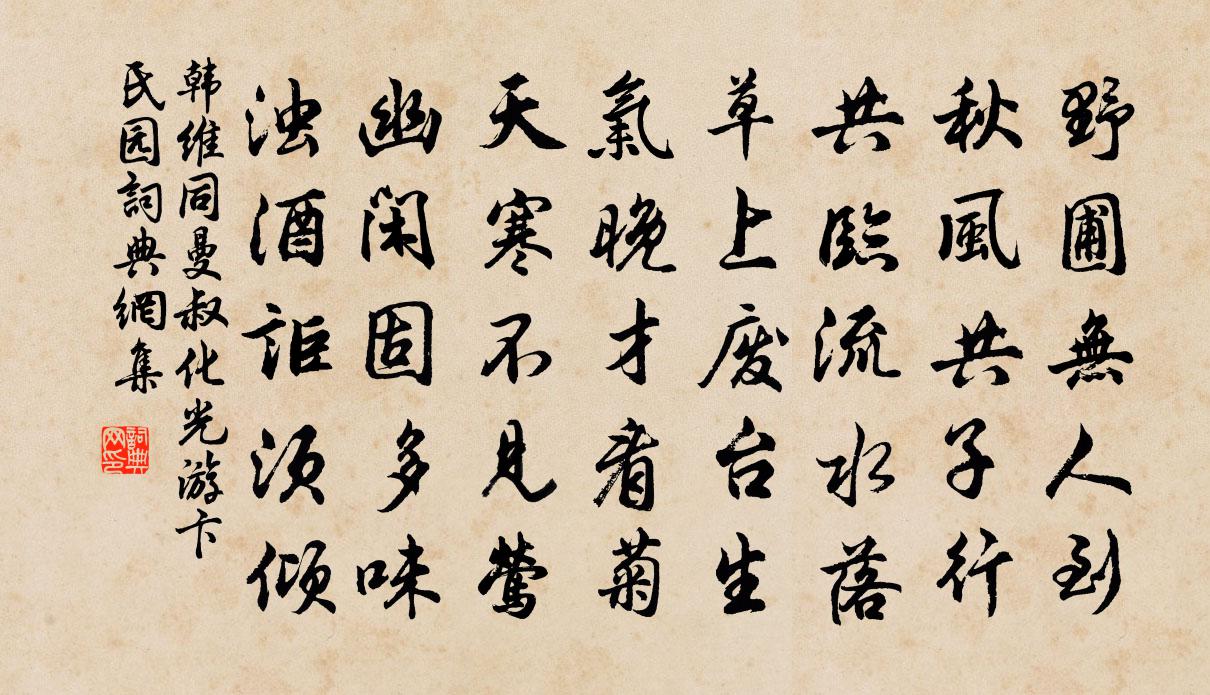 野圃無人到
秋風共子行
共臨流水落
草上废台生
氣晚才看菊
天寒不見莺
幽闲固多味
浊酒詎须倾
韩维同曼叔化光游卞
氏园詞典網集
詞典
网印